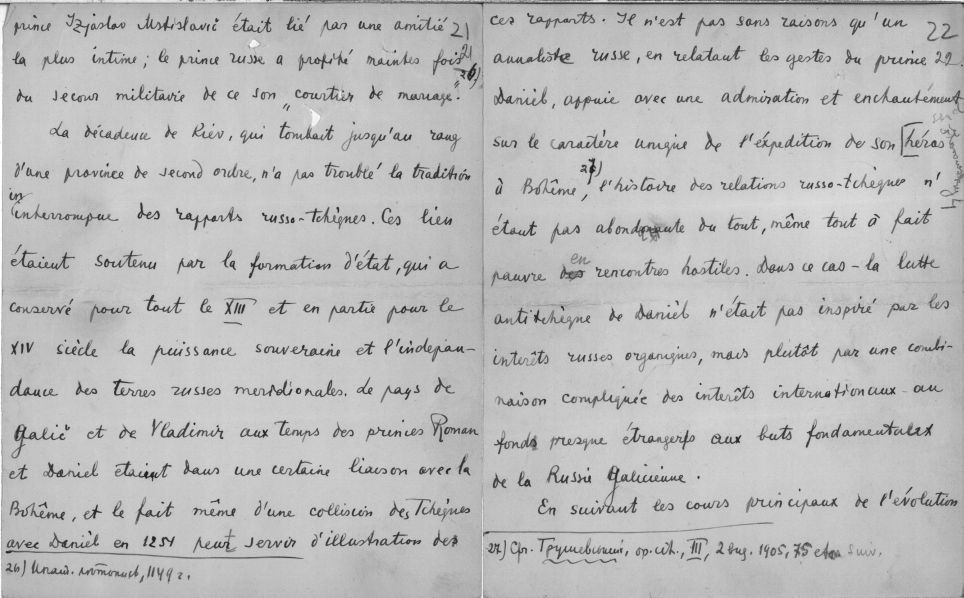 prince Izjaslav Mstislavič était lié par une amitié 21
la plus intime; le prince russe a profité maintes fois 21
du secour militaire de ce son „courtier de mariage." 26)
La décadence de Kiev, qui tombait jusqu'au rang
d'une province de second ordre, n'a pas troublé la tradition
ininterrompue des rapports russo-tchèques. Ces lien
étaient soutenu par la formation d'état, qui a
conservé pour tout le XIII et en partie pour le
XIV siècle la puissance souveraine et l'indépan-
dance des terres russes meridionales. Le pays de
Galič et de Vladimir aux temps des princes Roman
et Daniel étaient dans une certaine liaison avec la
Bohême, et le fait même d'une collision des Tchèques
avec Danièl en 1251 peut servir d'illustration des
26) Ипат. лѣтопись, 1149 г.
ces rapports. Il n'est pas sans raisons qu'un 22
annaliste russe, en relatant les gestes du prince 22
Danièl, appuie avec une admiration et enchantément
sur le caratère unique de l'éxpedition de son héros
à Bohême, 27) l'histoire des relations russo-tchèques n'
étant pas abondante du tout, même tout à fait
pauvre en rencontres hostiles. Dans ce cas-la lutte
antitchèque de Danièl n'était pas inspiré par les
interêts russes organiques, mais plutôt par une combi-
naison compliquée des interêts internationaux - au
fond presque étrangers aux buts fondamentalax
de la Russie Galicienne.
En suivant les cours principaux de l'évolution
27) Ср. Грушевський, op. cit., III, 2 вид. 1905, 75 et suiv.